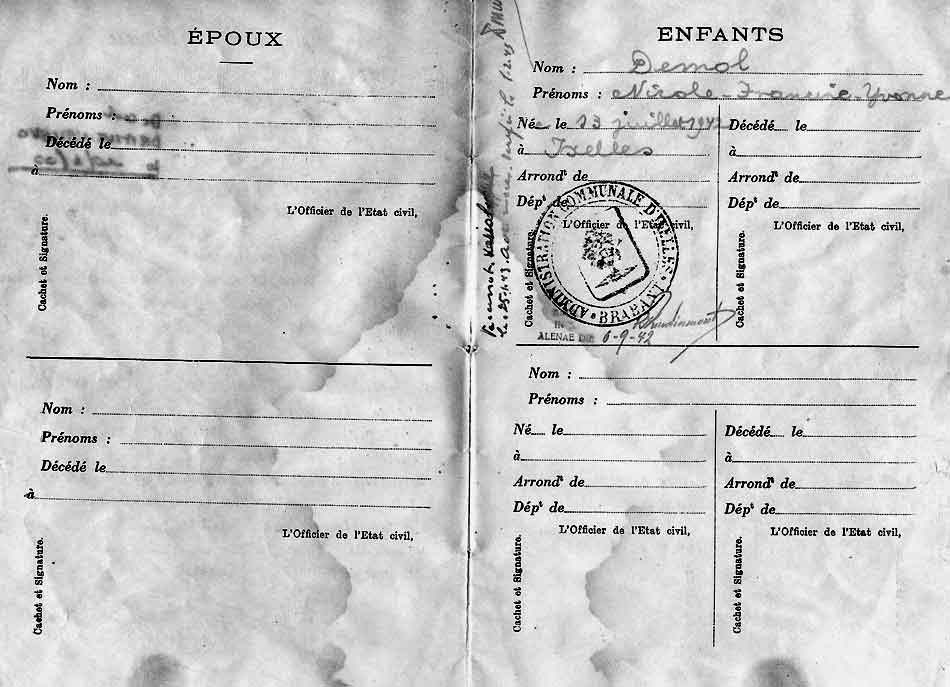 ÉPOUX
Nom :
Prénoms :
Décédé le
à
L'Officier de l'Etat civil,
Cachet et Signature.
Nom :
Prénoms :
Décédé le
à
L'Officier de l'Etat civil,
Cachet et Signature.
le 25-1-43
1-2-43
ENFANTS
Nom : Demol
Prénoms : Nicole-Francine-Yvonne
Née le 13 juillet 1942
à Ixelles
Arrondt de
Dépt de
L'Officier de l'Etat civil,
Cachet et Signature.
ADMINISTRATION COMMUNALE D'IXELLES
BRABANT
ALENAE DIE 6-9-42
Décédé le
à
Arrondt de
Dépt de
L'Officier de l'Etat civil,
Cachet et Signature.
Nom :
Prénoms :
Né le
à
Arrondt de
Dépt de
L'Officier de l'Etat civil,
Cachet et Signature.
Décédé le
à
Arrondt de
Dépt de
L'Officier de l'Etat civil,
Cachet et Signature.